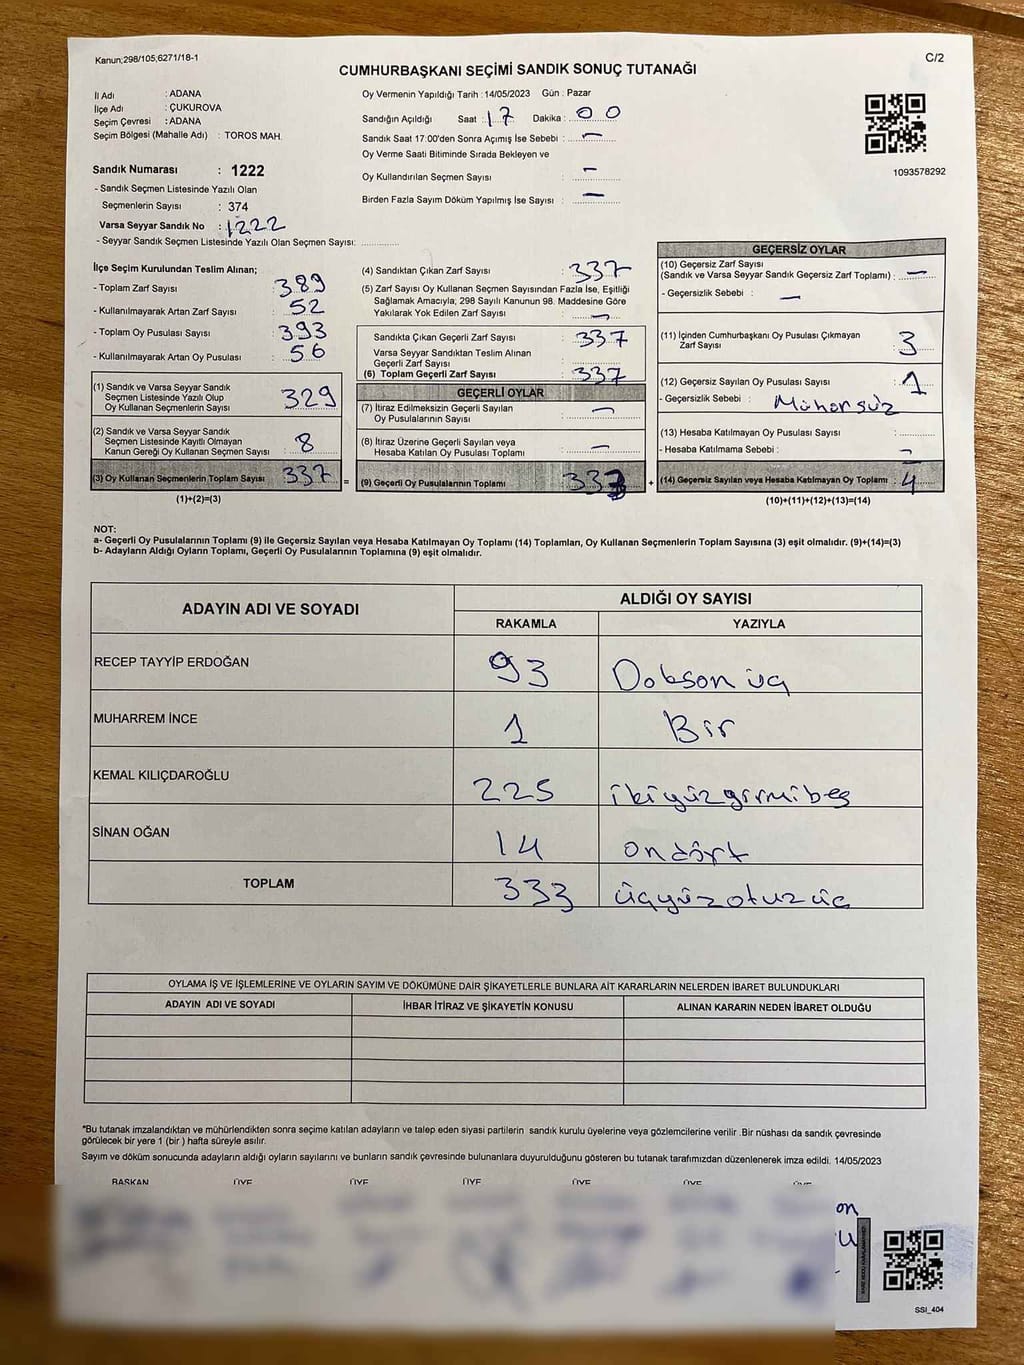 Kanun;298/105;6271/18-1
C/2
CUMHURBAŞKANI SEÇİMİ SANDIK SONUÇ TUTANAĞI
İl Adı : ADANA
İlçe Adı : ÇUKUROVA
Seçim Çevresi : ADANA
Seçim Bölgesi (Mahalle Adı) : TOROS MAH.
Sandık Numarası : 1222
- Sandık Seçmen Listesinde Yazılı Olan
Seçmenlerin Sayısı : 374
Varsa Seyyar Sandık No : 1222
- Seyyar Sandık Seçmen Listesinde Yazılı Olan Seçmen Sayısı: ............
Oy Vermenin Yapıldığı Tarih : 14/05/2023 Gün : Pazar
Sandığın Açıldığı Saat : 17 Dakika : 00
Sandık Saat 17:00'den Sonra Açımış İse Sebebi : -
Oy Verme Saati Bitiminde Sırada Bekleyen ve
Oy Kullandırılan Seçmen Sayısı : -
Birden Fazla Sayım Döküm Yapılmış İse Sayısı : -
1093578292
İlçe Seçim Kurulundan Teslim Alınan;
- Toplam Zarf Sayısı : 389
- Kullanılmayarak Artan Zarf Sayısı : 52
- Toplam Oy Pusulası Sayısı : 393
- Kullanılmayarak Artan Oy Pusulası : 56
(1) Sandık ve Varsa Seyyar Sandık
Seçmen Listesinde Yazılı Olup
Oy Kullanan Seçmenlerin Sayısı : 329
(2) Sandık ve Varsa Seyyar Sandık
Seçmen Listesinde Kayıtlı Olmayan
Kanun Gereği Oy Kullanan Seçmen Sayısı : 8
(3) Oy Kullanan Seçmenlerin Toplam Sayısı : 337 =
(1)+(2)=(3)
(4) Sandıktan Çıkan Zarf Sayısı : 337
(5) Zarf Sayısı Oy Kullanan Seçmen Sayısından Fazla İse, Eşitliği
Sağlamak Amacıyla, 298 Sayılı Kanunun 98. Maddesine Göre
Yakılarak Yok Edilen Zarf Sayısı : -
Sandıkta Çıkan Geçerli Zarf Sayısı : 337
Varsa Seyyar Sandıktan Teslim Alınan
Geçerli Zarf Sayısı :
(6) Toplam Geçerli Zarf Sayısı : 337
GEÇERLİ OYLAR
(7) İtiraz Edilmeksizin Geçerli Sayılan
Oy Pusulalarının Sayısı : -
(8) İtiraz Üzerine Geçerli Sayılan veya
Hesaba Katılan Oy Pusulası Toplamı : -
(9) Geçerli Oy Pusulalarının Toplamı : 333 +
GEÇERSİZ OYLAR
(10) Geçersiz Zarf Sayısı
(Sandık ve Varsa Seyyar Sandık Geçersiz Zarf Toplamı) : -
- Geçersizlik Sebebi : -
(11) İçinden Cumhurbaşkanı Oy Pusulası Çıkmayan
Zarf Sayısı : 3
(12) Geçersiz Sayılan Oy Pusulası Sayısı : 1
- Geçersizlik Sebebi : Mühürsüz
(13) Hesaba Katılmayan Oy Pusulası Sayısı : ............
- Hesaba Katılmama Sebebi : -
(14) Geçersiz Sayılan veya Hesaba Katılmayan Oy Toplamı : 4
(10)+(11)+(12)+(13)=(14)
NOT:
a- Geçerli Oy Pusulalarının Toplamı (9) ile Geçersiz Sayılan ve Hesaba Katılmayan Oy Toplamı (14) Toplamları, Oy Kullanan Seçmenlerin Toplam Sayısına (3) eşit olmalıdır. (9)+(14)=(3)
b- Adayların Aldığı Oyların Toplamı, Geçerli Oy Pusulalarının Toplamına (9) eşit olmalıdır.
ADAYIN ADI VE SOYADI ALDIĞI OY SAYISI
RAKAMLA YAZIYLA
RECEP TAYYİP ERDOĞAN 93 Doksan üç
MUHARREM İNCE 1 Bir
KEMAL KILIÇDAROĞLU 225 ikiyüzyirmibeş
SİNAN OĞAN 14 ondört
TOPLAM 333 üçyüzotuzüç
OYLAMA İŞ VE İŞLEMLERİNE VE OYLARIN SAYIM VE DÖKÜMÜNE DAİR ŞİKAYETLERLE BUNLARA AİT KARARLARIN NELERDEN İBARET BULUNDUKLARI
ADAYIN ADI VE SOYADI İHBAR İTİRAZ VE ŞİKAYETİN KONUSU ALINAN KARARIN NEDEN İBARET OLDUĞU
*Bu tutanak imzalandıktan ve mühürlendikten sonra seçime katılan adayların ve talep eden siyasi partilerin sandık kurulu üyelerine veya gözlemcilerine verilir .Bir nüshası da sandık çevresinde
görülecek bir yere 1 (bir ) hafta süreyle asılır.
Sayım ve döküm sonucunda adayların aldığı oyların sayılarını ve bunların sandık çevresinde bulunanlara duyurulduğunu gösteren bu tutanak tarafımızdan düzenlenerek imza edildi. 14/05/2023
BAŞKAN ÜYE ÜYE ÜYE ÜYE ÜYE ÜYE
SSI_404